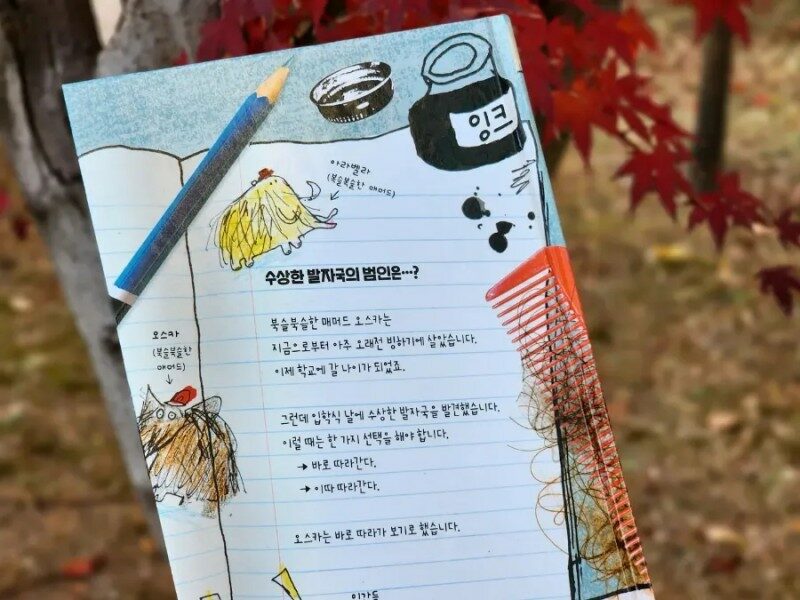 잉크
아라벨라
(북슬북슬한 매머드)
수상한 발자국의 범인은…?
오스카
(북슬북슬한
매머드)
북슬북슬한 매머드 오스카는
지금으로부터 아주 오래전 빙하기에 살았습니다.
이제 학교에 갈 나이가 되었죠.
그런데 입학식 날에 수상한 발자국을 발견했습니다.
이럴 때는 한 가지 선택을 해야 합니다.
→ 바로 따라간다.
→ 이따 따라간다.
오스카는 바로 따라가 보기로 했습니다.